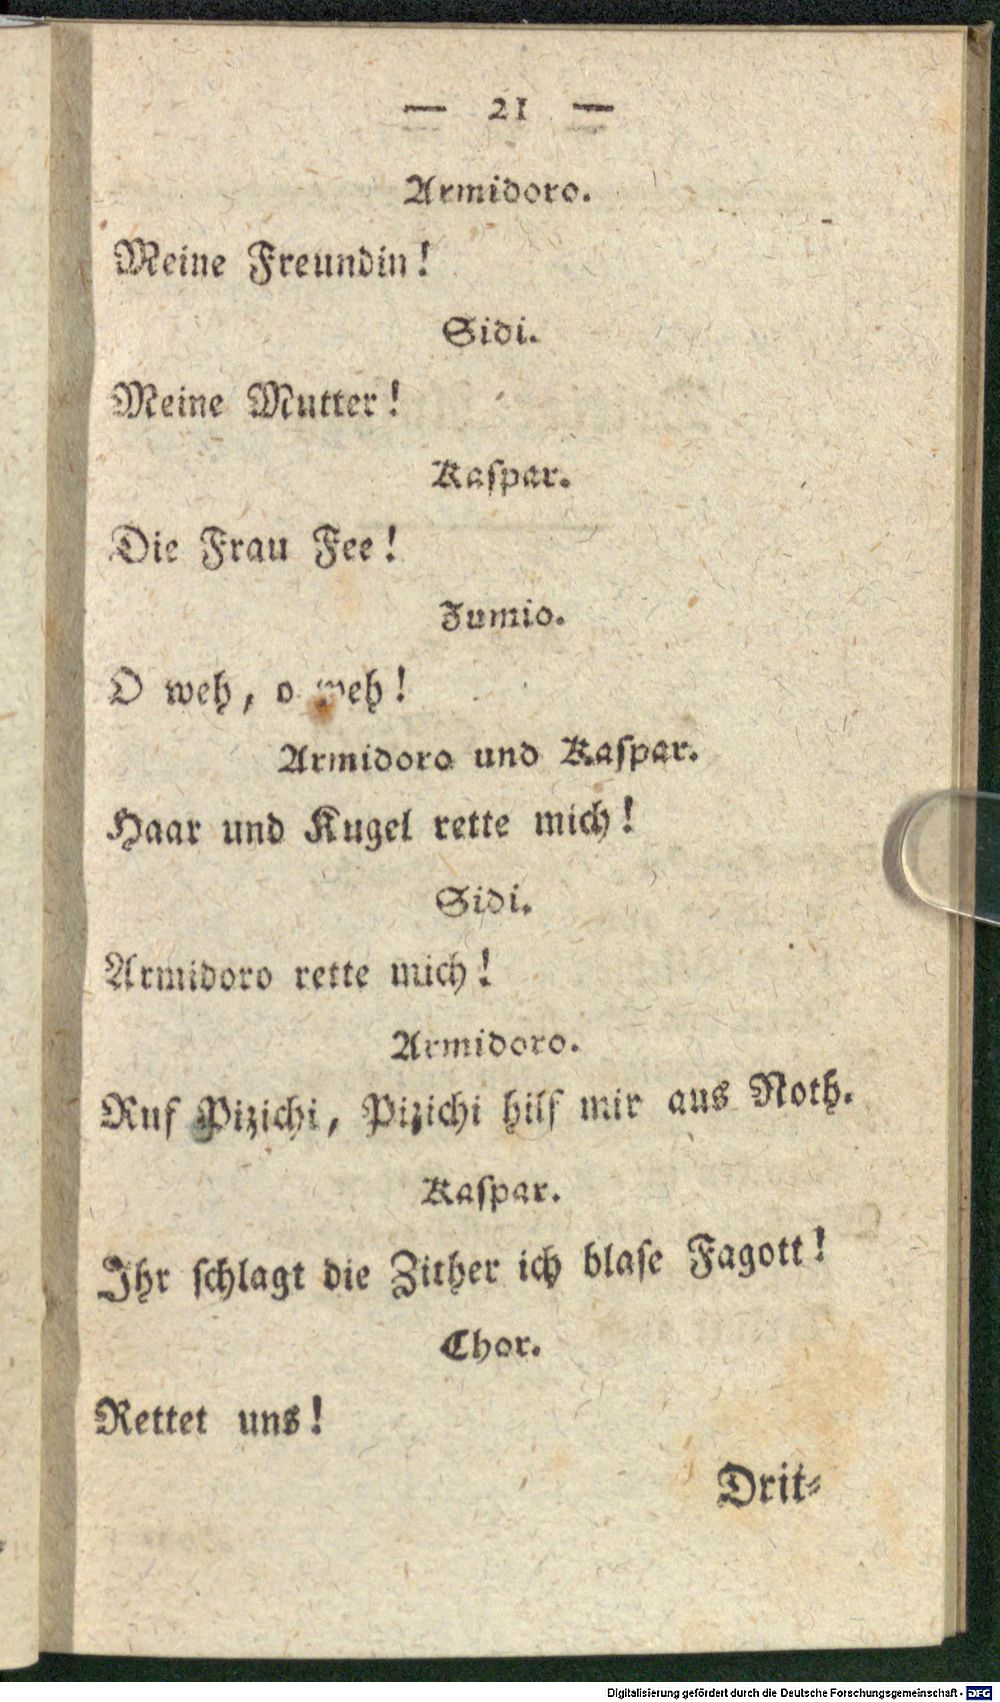 — 21 —
Armidoro.
Meine Freundin!
Sidi.
Meine Mutter!
Kaſpar.
Die Frau Fee!
Zumio.
O weh, o weh!
Armidoro und Kaſpar.
Haar und Kugel rette mich!
Sidi.
Armidoro rette mich!
Armidoro.
Ruf Pizichi, Pizichi hilf mir aus Noth.
Kaſpar.
Ihr ſchlagt die Zither ich blaſe Fagott!
Chor.
Rettet uns!
Drit⸗
Digitalisierung gefördert durch die Deutsche Forschungsgemeinschaft - DFG